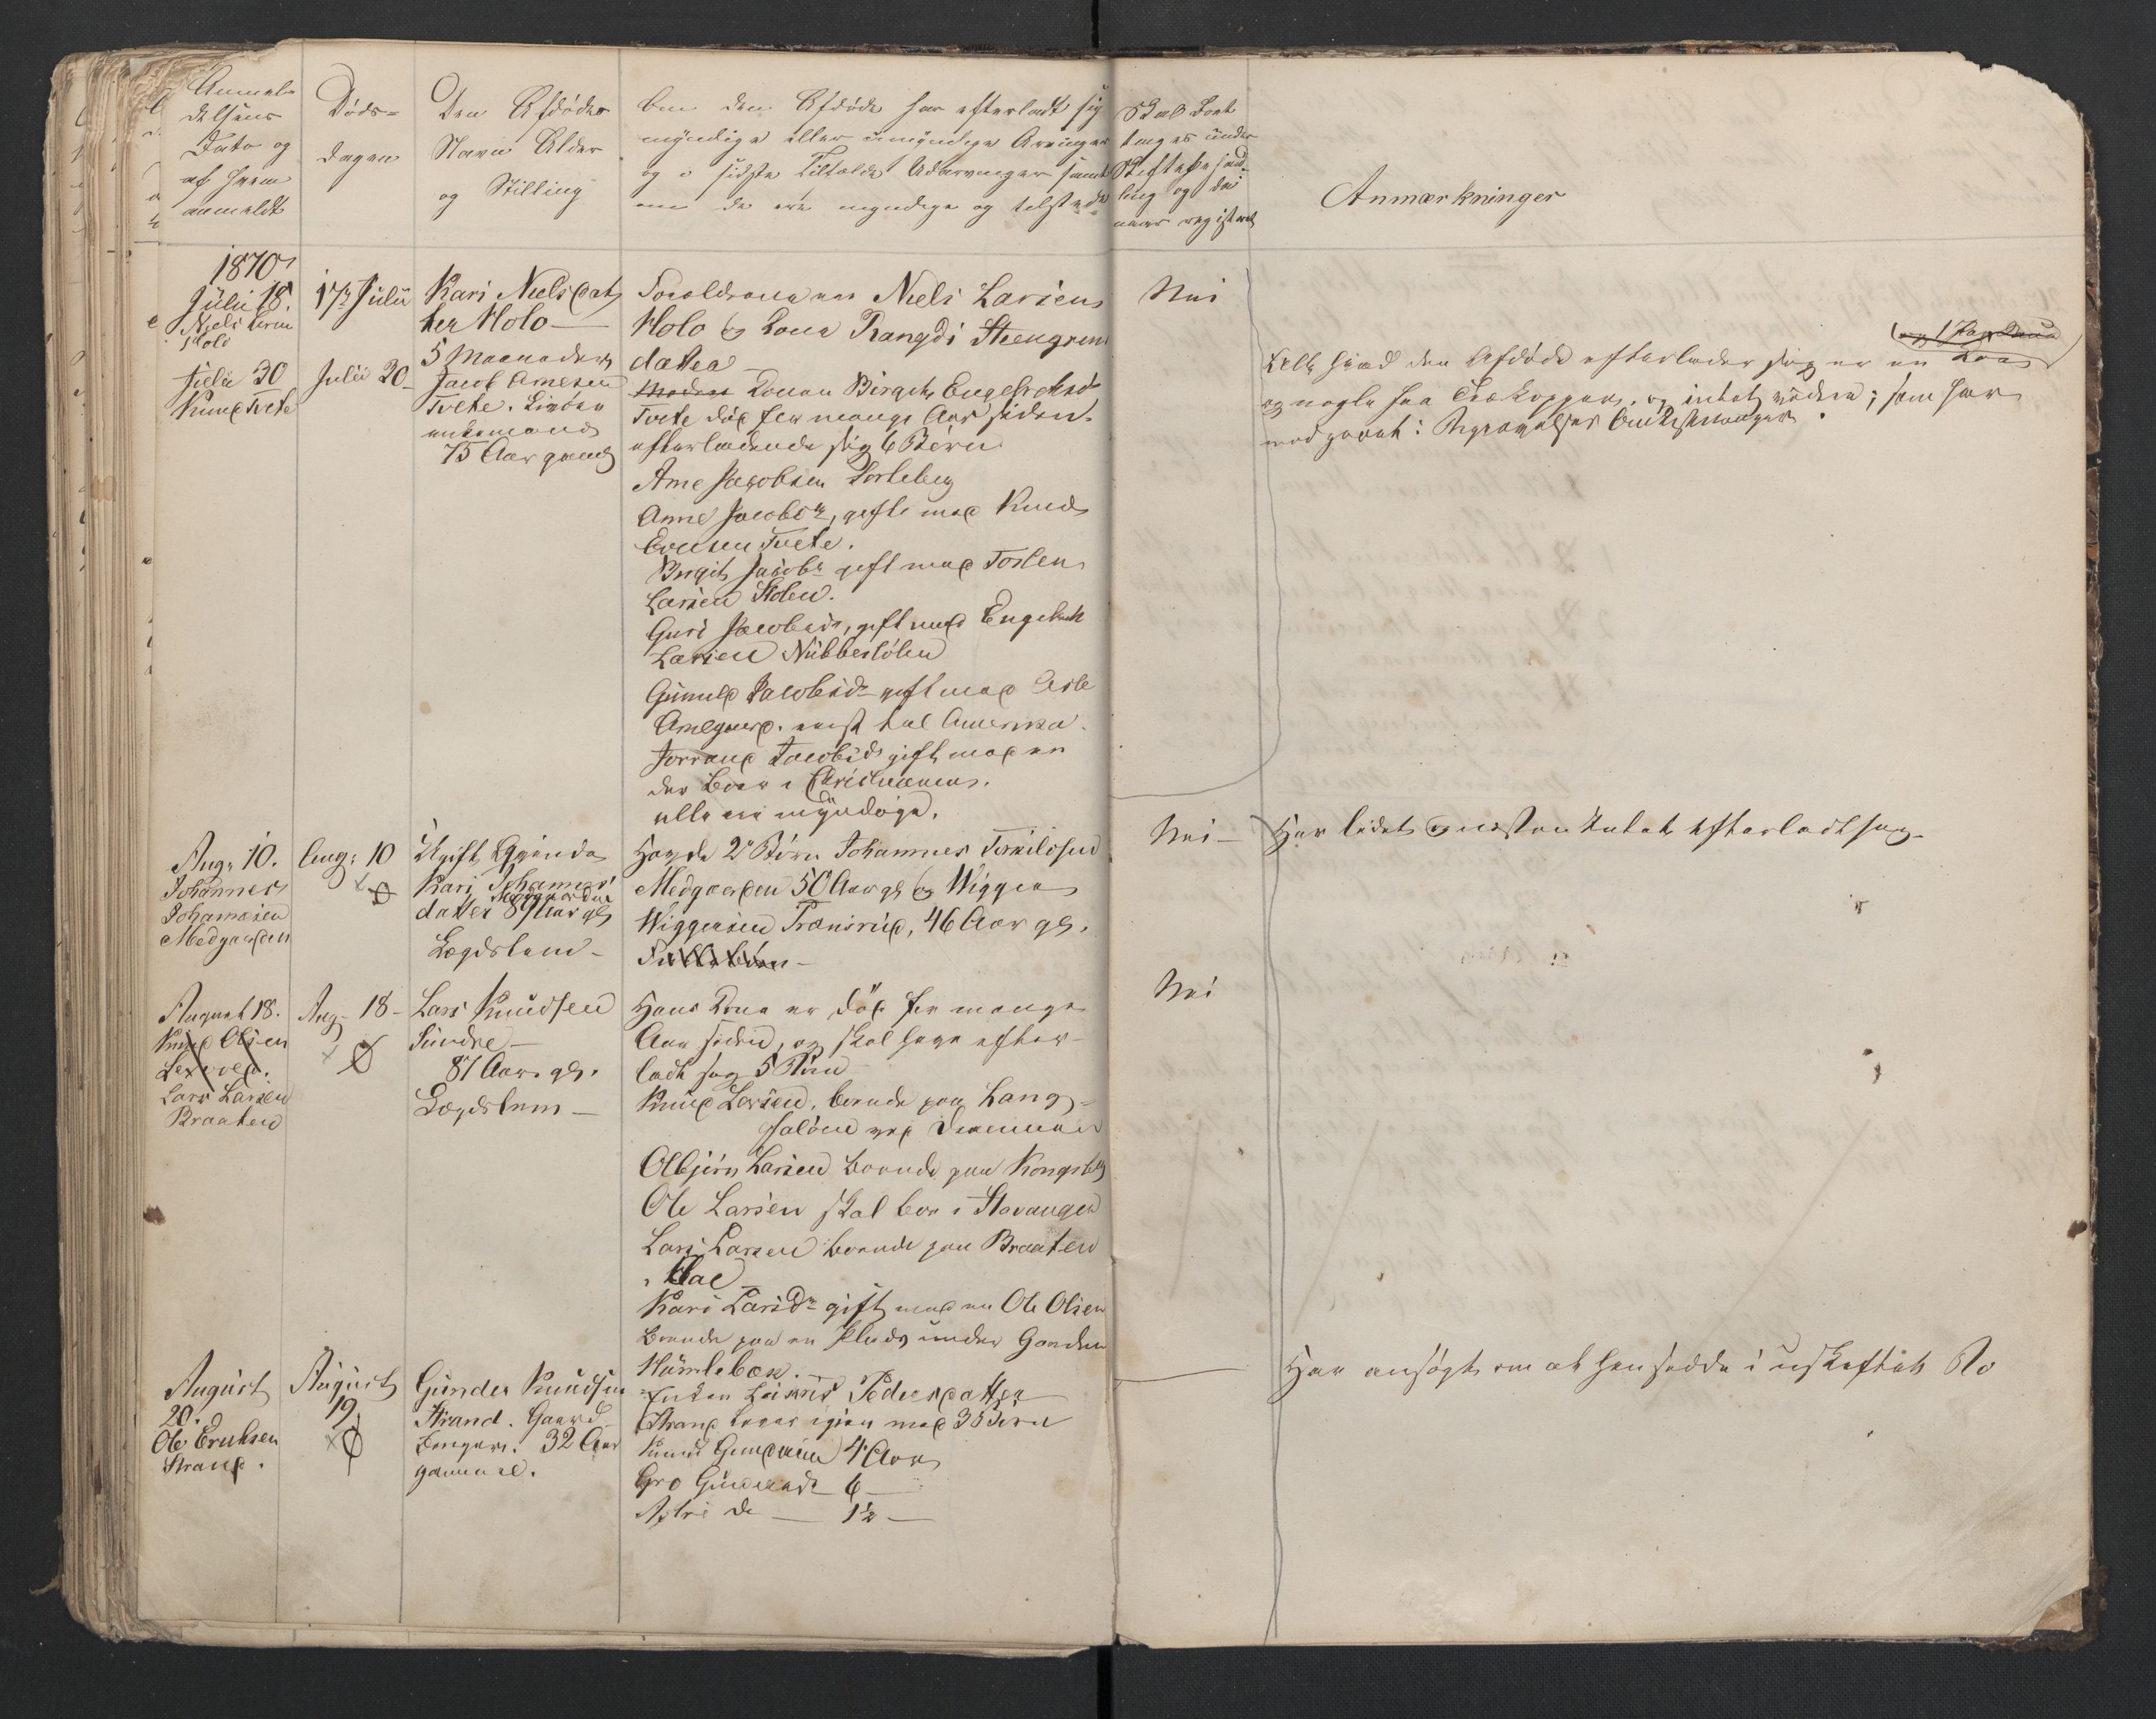 Anmel-
delsens
Dato og
af hvem
anmeldt
Døds-
dagen
Den Afdødes
Navn Alder
og Stilling
Om den Afdøde har efterladt sig
myndige eller umyndige Arvinger
og i sidste Tilfælde Udarvinger samt
om de ere myndige og tilstede
Skal Boet
tages under
Skiftebehand-
ling og da
naar registeret
Anmærkninger
1870
Julii 18.
Niels Larsen
Holo
17de Julii
Kari Nielsdat
ter Holo
5 Maaneder
Forældrene ere Niels Larsen
Holo og Kona Rangdi Steengrims
datter
Nei
Julii 30
Knud Tvete
Julii 20
Jacob Arnesen
Tvete.
enkemand
75 Aar gaml
Konen Birgit Engebretsd
Tvete død for mange Aar siden.
efterladende sig 6 Børn
Arne Jacobsen
Anne Jacobsdr, gift med Knud
Evensen Tvete.
Birgit Jacobsdr gift med Torsten
Larsen Stølen.
Guri Jacobsdr, gift med Engebreth
Larsen Nubbestølen
Gunild Jacobsdr gift med Asle
reist til Amerika.
Jorrand Jacobsdr gift med en
der Boer i Christiania.
alle ere myndige.
Alt hvad den Afdøde efterlader sig er en
og nogle faa og intet videre; som har
medgaaet i Begravelses Omkostninger.
Aug: 10.
Johannes
Johannesen
Medgaarden
Aug: 10
Ugift Qvinde
Kari Johannes
Medgaarden
datter 89 Aar gl
Lægdslem
Havde 2 Børn Johannes Torkilsen
Medgaarden 50 Aar gl og Wiggen
Wiggensen Trænsrud, 46 Aar gl.
Nei
Har lidet og næsten Intet efterladt sig.
August 18.
Knud Olsen
Lars Larsen
Braaten
Aug. 18
Lars Knudsen
Sundre
87 Aar gl.
Lægdslem
Hans Kone er død for mange
Aar siden, og skal have efter-
ladt sig 5 Børn
Knud Larsen, boende paa Lang
ved Drammen
Olbjørn Larsen boende paa Kongsberg
Ole Larsen skal boe i Stavanger
Lars Larsen boende paa Braaten
i Aal
Kari Larsdr gift med en Ole Olsen
Boende paa en Plads under Gaarden
Hamlebæk.
Nei
August
20.
Ole Eriksen
Strand.
August
19
Gunder Knudsen
Strand. Gaard-
bruger. 32 Aar
gammel.
Enken Pedersdatter
Strand lever igjen med 3 Børn
Knud Gundersen 4 Aar
Gro Gundersdr 6 —
Astri do — 1½ —
Har ansøgt om at hensidde i uskiftet Bo